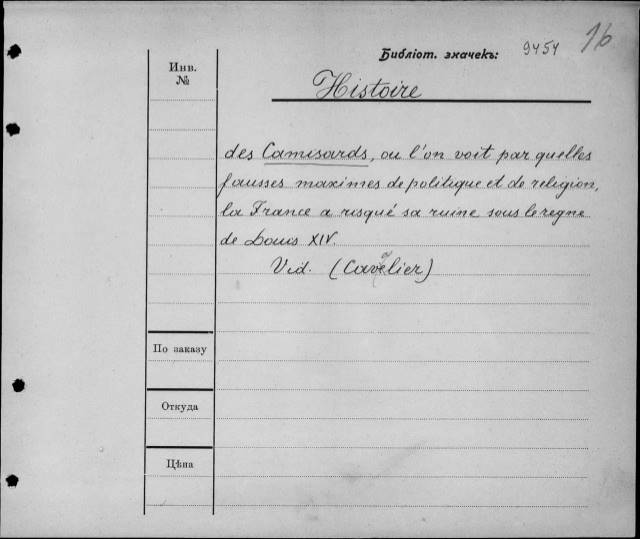 Библіот. значекъ: 9454 16
Инв.
№
Histoire
des Camisards, ou l'on voit par quelles
fausses maximes de politique et de religion,
la France a risqué sa ruine sous le regne
de Louis XIV.
Vid. (Cavelier)
По заказу
Откуда
Цѣна